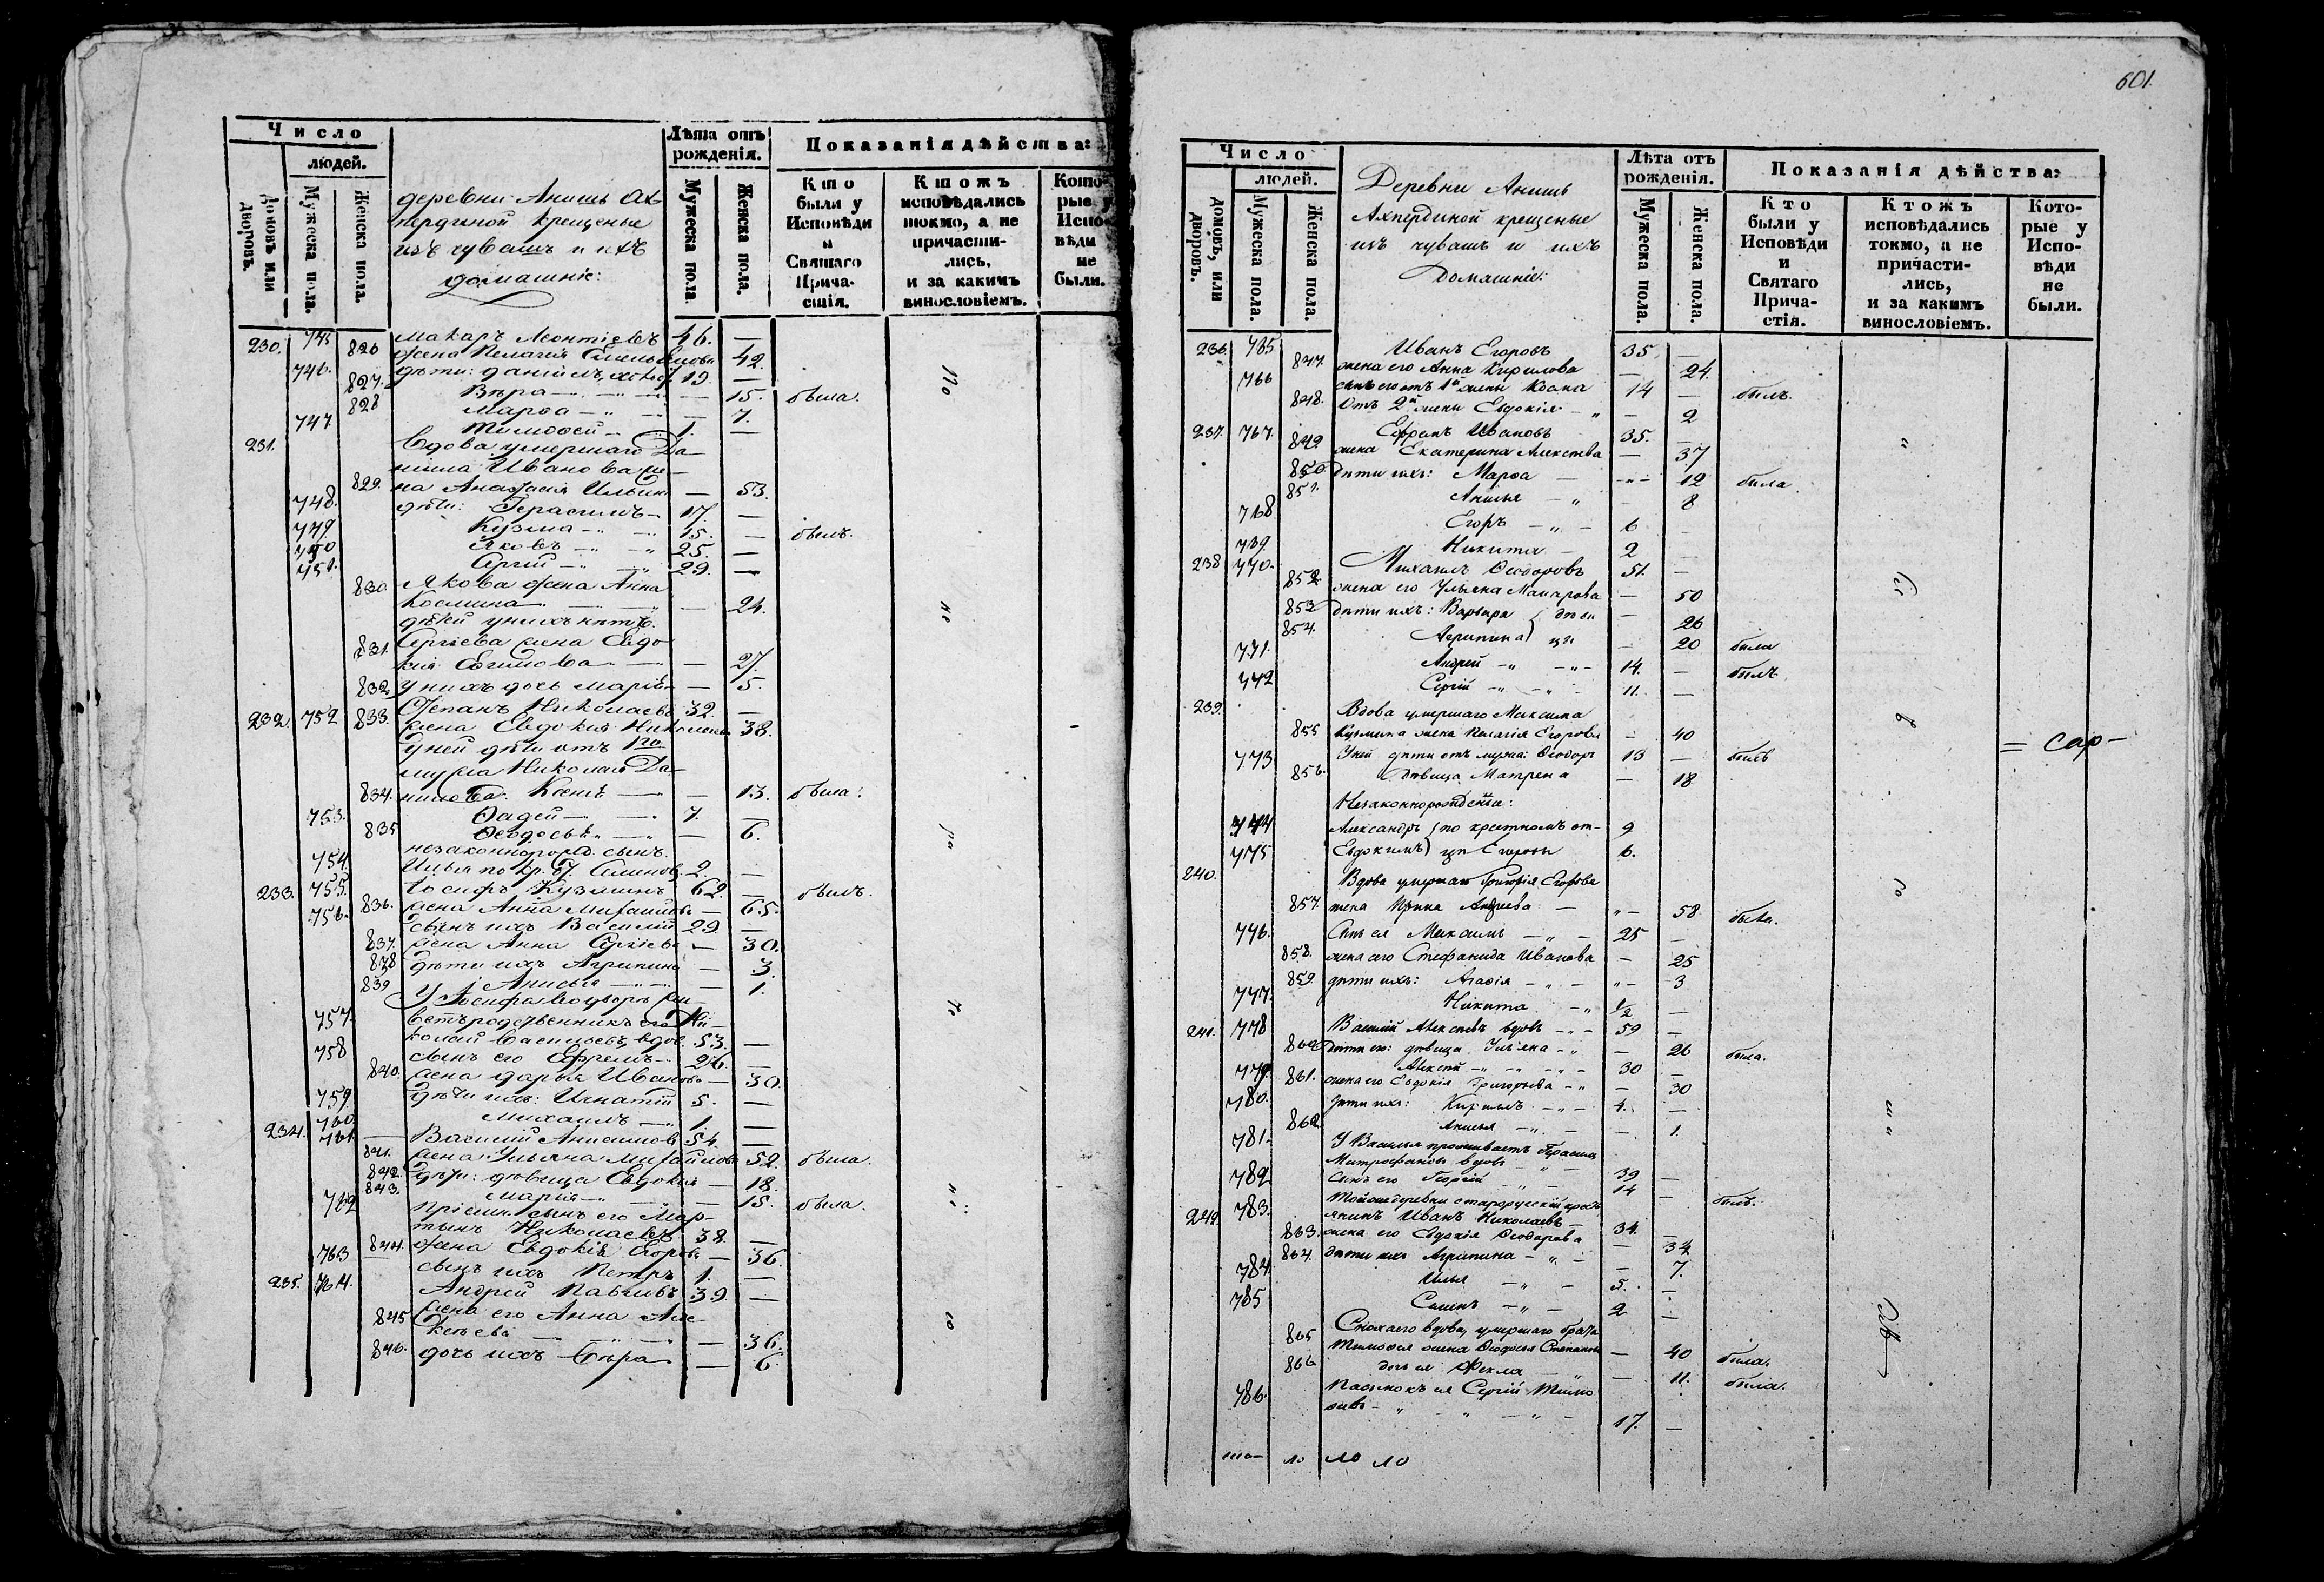 Число
людей.
Домовъ или дворовъ.
Мужеска пола.
Женска пола.
деревни Анишъ Ах-
пердиной крещеные
изъ чувашъ и ихъ
домашніе:
Лѣта отъ рожденія.
Мужеска пола.
Женска пола.
Показанія дѣйства:
Кто были у Исповѣди и Святаго Причастія.
Ктожъ исповѣдались токмо, а не причастились, и за какимъ винословіемъ.
Которые у Исповѣди не были.
230. 745 Макаръ Леонтіевъ 46. —
826 жена Пелагія Емельянова 42.
746. дѣти: Даніилъ, 19. —
827. Вѣра — 15. была.
828 Марѳа — 7.
747. Тимоѳей 1. —
231. Вдова умершаго Да-
ніила Иванова же-
829. на Анастасія Ильин. — 53.
748. дѣти: Герасимъ 17. —
749. Кузма 15. — былъ.
750 Яковъ 25. —
751. Сергій 29. —
830. Якова жена Анна
Космина — 24.
дѣтей у нихъ нѣтъ.
831. Сергіева жена Евдо-
кія Ефимова — 27.
832. у нихъ дочь Марія — 5.
232. 752 Степанъ Николаевъ 32. —
833. жена Евдокія Николаева 38.
У ней дѣти отъ 1го
мужа Николая Да-
834. нилова: Ксенія — 13. была.
753. Ѳадей 7. —
835 Ѳеодосья — 6.
незаконнорожд. сынъ
754. Илья по кр. от. Семеновъ 2. —
233. 755. Іосифъ Кузминъ 62. — былъ.
836. жена Анна Михайлова — 65.
756. сынъ ихъ Василій 29. —
837. жена Анна Сергіева — 30.
838 дѣти ихъ Агрипина — 3.
839 Анисья — 1.
У Іосифа во дворѣ жи-
757. ветъ родственникъ его Ни-
колай Васильевъ, вдов. 53. —
758 сынъ его Ефремъ 26. —
840. жена Дарья Иванова — 30.
759. дѣти ихъ: Игнатій 5. —
760. Михаилъ 1. —
234. 761. Василій Анисимов 54. —
841. жена Ульяна Михайлова 52. была.
842. дѣти: дѣвица Евдокія — 18.
843. Марія — 15. была.
762 пріемн. сынъ его Мар-
тынъ Николаевъ 38. —
844. жена Евдокія Егорова — 36.
763 сынъ ихъ Петръ 1. —
235. 764. Андрей Павловъ 39. —
845 жена его Анна Але-
ксѣева — 36.
846. дочь ихъ Вѣра — 6.
По
не
ра
601.
Число
людей.
Домовъ, или дворовъ.
Мужеска пола.
Женска пола.
Деревни Анишъ
Ахпердиной крещеные
изъ чувашъ и ихъ
домашніе:
Лѣта отъ рожденія.
Мужеска пола.
Женска пола.
Показанія дѣйства:
Кто были у Исповѣди и Святаго Причастія.
Ктожъ исповѣдались токмо, а не причастились, и за какимъ винословіемъ.
Которые у Исповѣди не были.
236. 765 Иванъ Егоровъ 35 —
847. жена его Анна Кирилова — 24.
766 сынъ его отъ 1й жены Косма 14 — былъ.
848. Отъ 2й жены Евдокія — 2
237. 767. Ефремъ Ивановъ 35. —
849 жена Екатерина Алексѣева — 37
850 дѣти ихъ: Марѳа — 12 была.
851. Анисья — 8
768 Егоръ 6 —
739. Никита 2 —
238 770. Михаилъ Ѳеодоровъ 51. —
852. жена его Ульяна Макарова — 50
853 дѣти ихъ: Варвара } дѣви — 26
854. Агрипина } цы — 20 была
771. Андрей 14. — былъ
772 Сергій 11. —
239. Вдова умершаго Максима
855 Кузмина жена Пелагія Егорова — 40
773 У ней дѣти отъ мужа: Ѳеодоръ 13 — былъ
856. дѣвица Матрена — 18
Незаконнорожденные:
774 Александръ } по крестномъ от- 9
775 Евдокимъ } цѣ Егоровы 6.
= сар —
240. Вдова умершаго Григорія Егорова
857. жена Ирина Андреева — 58 была.
776. Сынъ ея Максимъ 25 —
858. жена его Стефанида Иванова — 25
859. дѣти ихъ: Агафія — 3
777. Никита 1/2 —
241. 778 Василій Алексѣевъ вдовъ 59 —
860 дѣти его: дѣвица Ульяна — 26 была.
779. Алексѣй 30 —
861. жена его Евдокія Григорьева — 30
780. дѣти ихъ: Кирилъ 4. —
862. Анисья — 1.
781. У Василья проживаетъ Герасимъ
Митрофановъ вдовъ 39 —
782 Сынъ его Георгій 14 — былъ.
Той же деревни старорусскій крест-
242. 783. янинъ Иванъ Николаевъ 34. —
863. жена его Евдокія Ѳеодорова — 34
864. дѣти ихъ Агрипина — 7.
784. Илья 5. —
785 Семенъ 2 —
Сноха его вдова, умершаго брата
865 Тимоѳея жена Ѳеодосья Степанова — 40 была.
866 дочь ея Ѳекла — 11. была.
786. Пасынокъ ея Сергій Тимо-
ѳеевъ 17. —